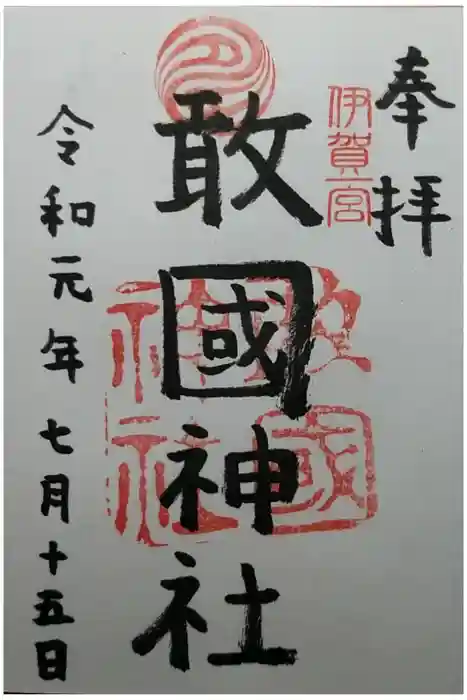 奉拝
伊賀一宮
敢國神社
敢國
神社
令和元年七月十五日